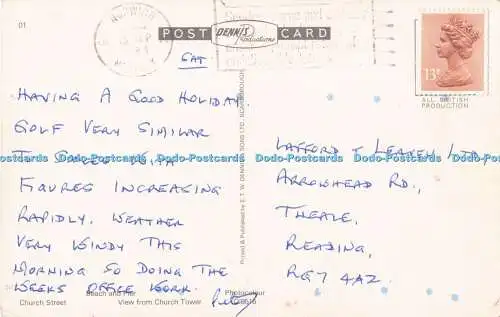 01
NORWICH
POST DENNIS Productions CARD
13P
ALL BRITISH
PRODUCTION
SAT
HAVING A GOOD HOLIDAY
GOLF VERY SIMILAR
TO
FIGURES INCREASING
RAPIDLY. WEATHER
VERY WINDY THIS
MORNING SO DOING THE
WEEKS OFFICE WORK.
LAFFORD & LEAVEY LTD
ARROWHEAD RD.,
THEALE,
READING,
RG7 4AZ
Printed & Published by E. T. W. DENNIS & SONS LTD., SCARBOROUGH
Photocolour
Beach and Pier
Church Street
View from Church Tower
Dodo-Postcards Dodo-Postcards Dodo-Postcards Dodo-Postcards Dodo-Postcards